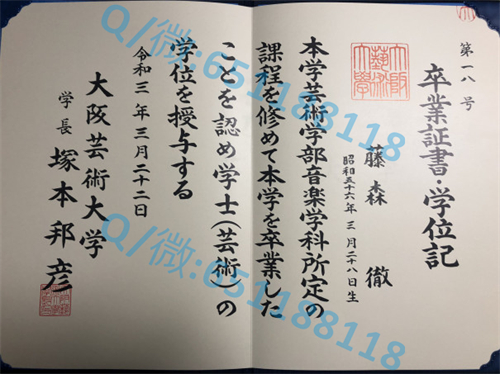 第一八号
卒業証書・学位記
大阪藝術大學
藤森 徹
昭和五十六年三月二十八日生
本学芸術学部音楽学科所定の
課程を修めて本学を卒業した
ことを認め学士(芸術)の
学位を授与する
令和三年三月二十二日
大阪芸術大学
学長 塚本邦彦
Q/微:651188118
Q/微:651188118